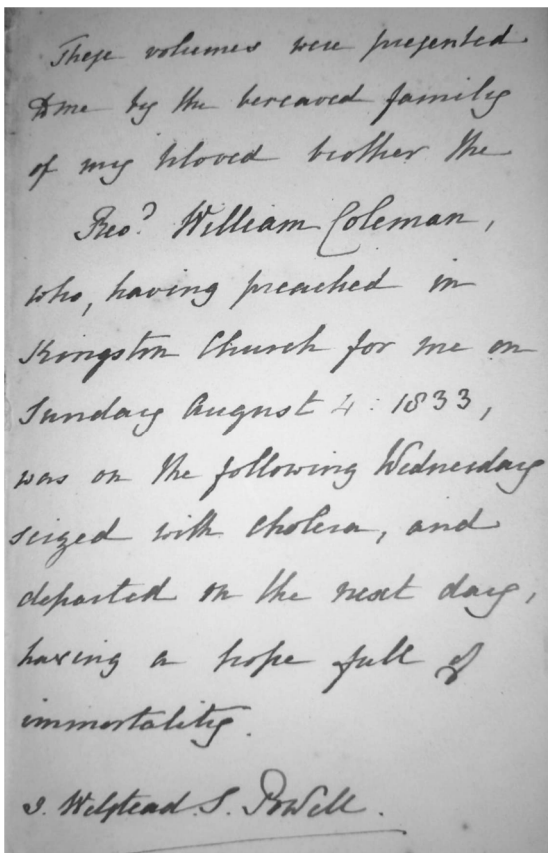 These volumes were presented
to me by the bereaved family
of my beloved brother the
Revd. William Coleman,
who, having preached in
Kingston Church for me on
Sunday August 4: 1833,
was on the following Wednesday
seized with cholera, and
departed on the next day,
having a hope full of
immortality.
Welstead S. Powell.